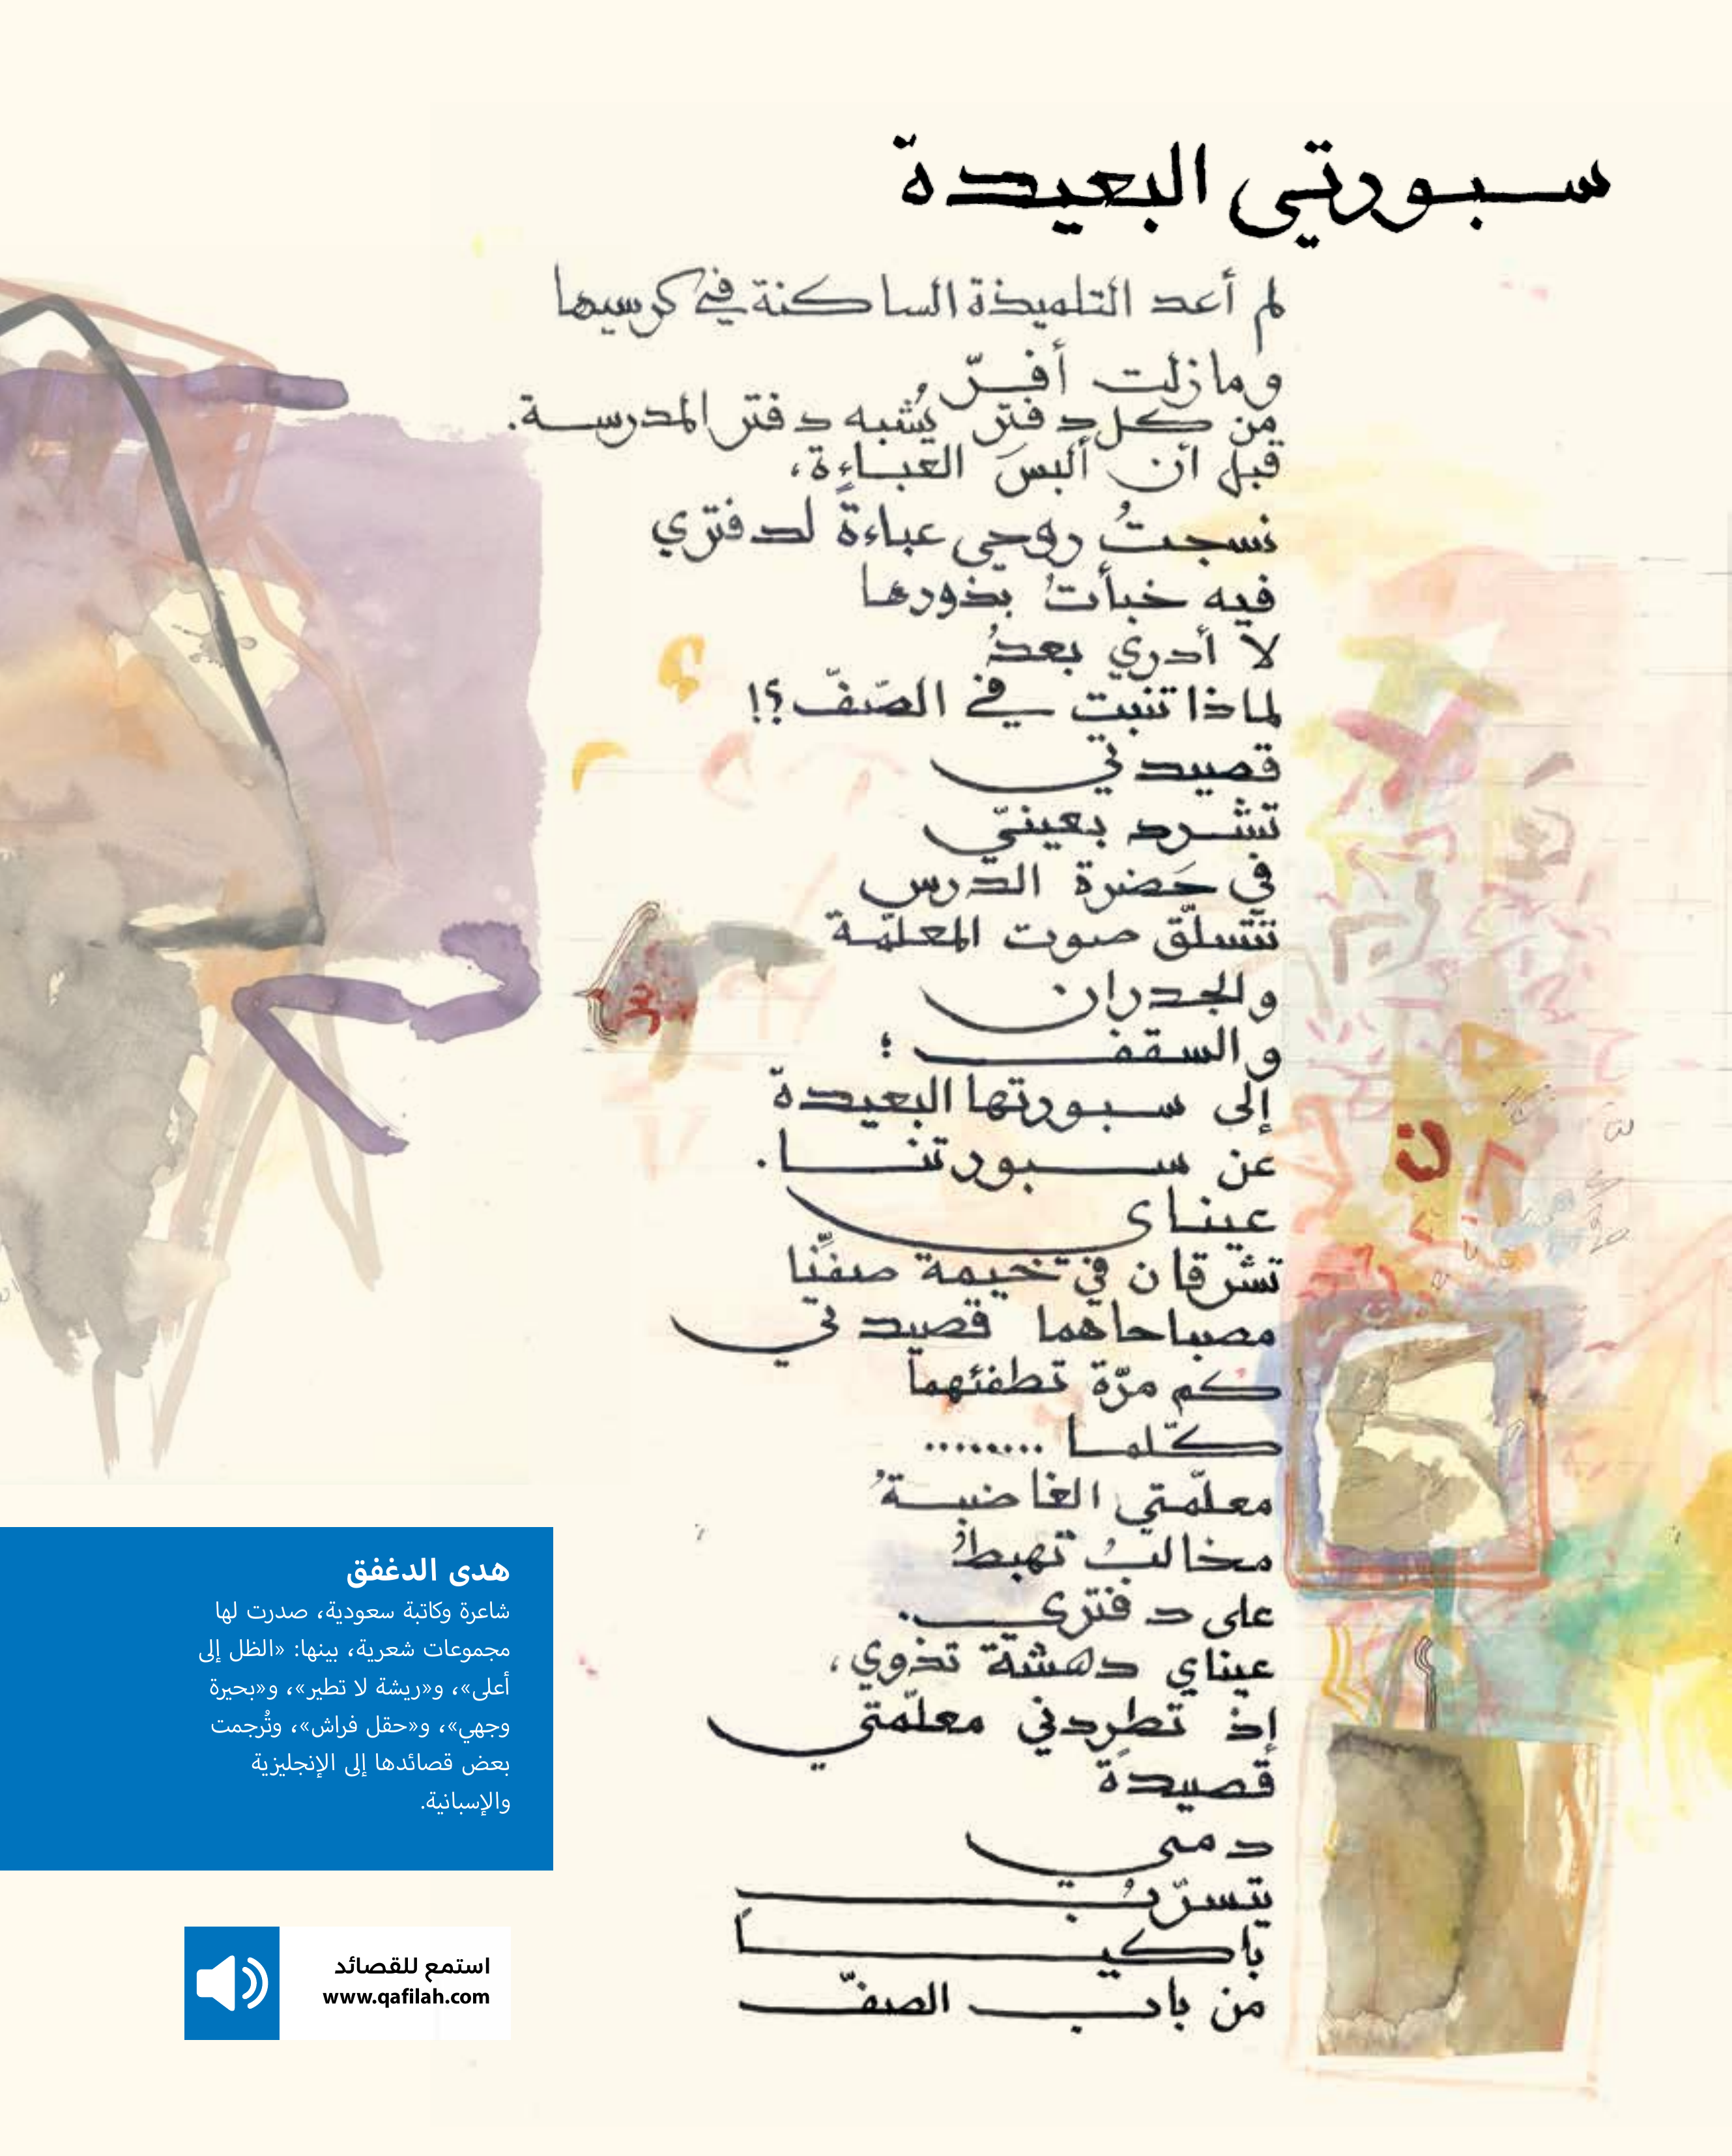 سبورتي البعيدة
لم أعد التلميذة الساكنة في كرسيها
وما زلت أفرّ
من كل دفتر يُشبه دفتر المدرسة.
قبل أن ألبسَ العباءة،
نسجتُ روحي عباءةً لدفتري
فيه خبأتُ بذورها
لا أدري بعدُ
لماذا تنبت في الصّفّ؟!
قصيدتي
تشرد بعينيّ
في حَضرة الدّرس
تتسلّق صوت المعلّمة
والجدران
والسقف؛
إلى سبورتها البعيدة
عن سبورتنا.
عيناي
تشرقان في خيمة صفّنا
مصباحاهما قصيدتي
كم مرّة تطفئهما
كلّما .........
معلّمتي الغاضبةُ
مخالبُ تهبطُ
على دفتري.
عيناي دهشة تذوي،
إذ تطردني معلّمتي
قصيدةً
دمي
يتسرّبُ
باكياً
من باب الصفّ
هدى الدغفق
شاعرة وكاتبة سعودية، صدرت لها
مجموعات شعرية، بينها: «الظل إلى
أعلى»، و«ريشة لا تطير»، و«بحيرة
وجهي»، و«حقل فراش»، وتُرجمت
بعض قصائدها إلى الإنجليزية
والإسبانية.
استمع للقصائد
www.qafilah.com
ن